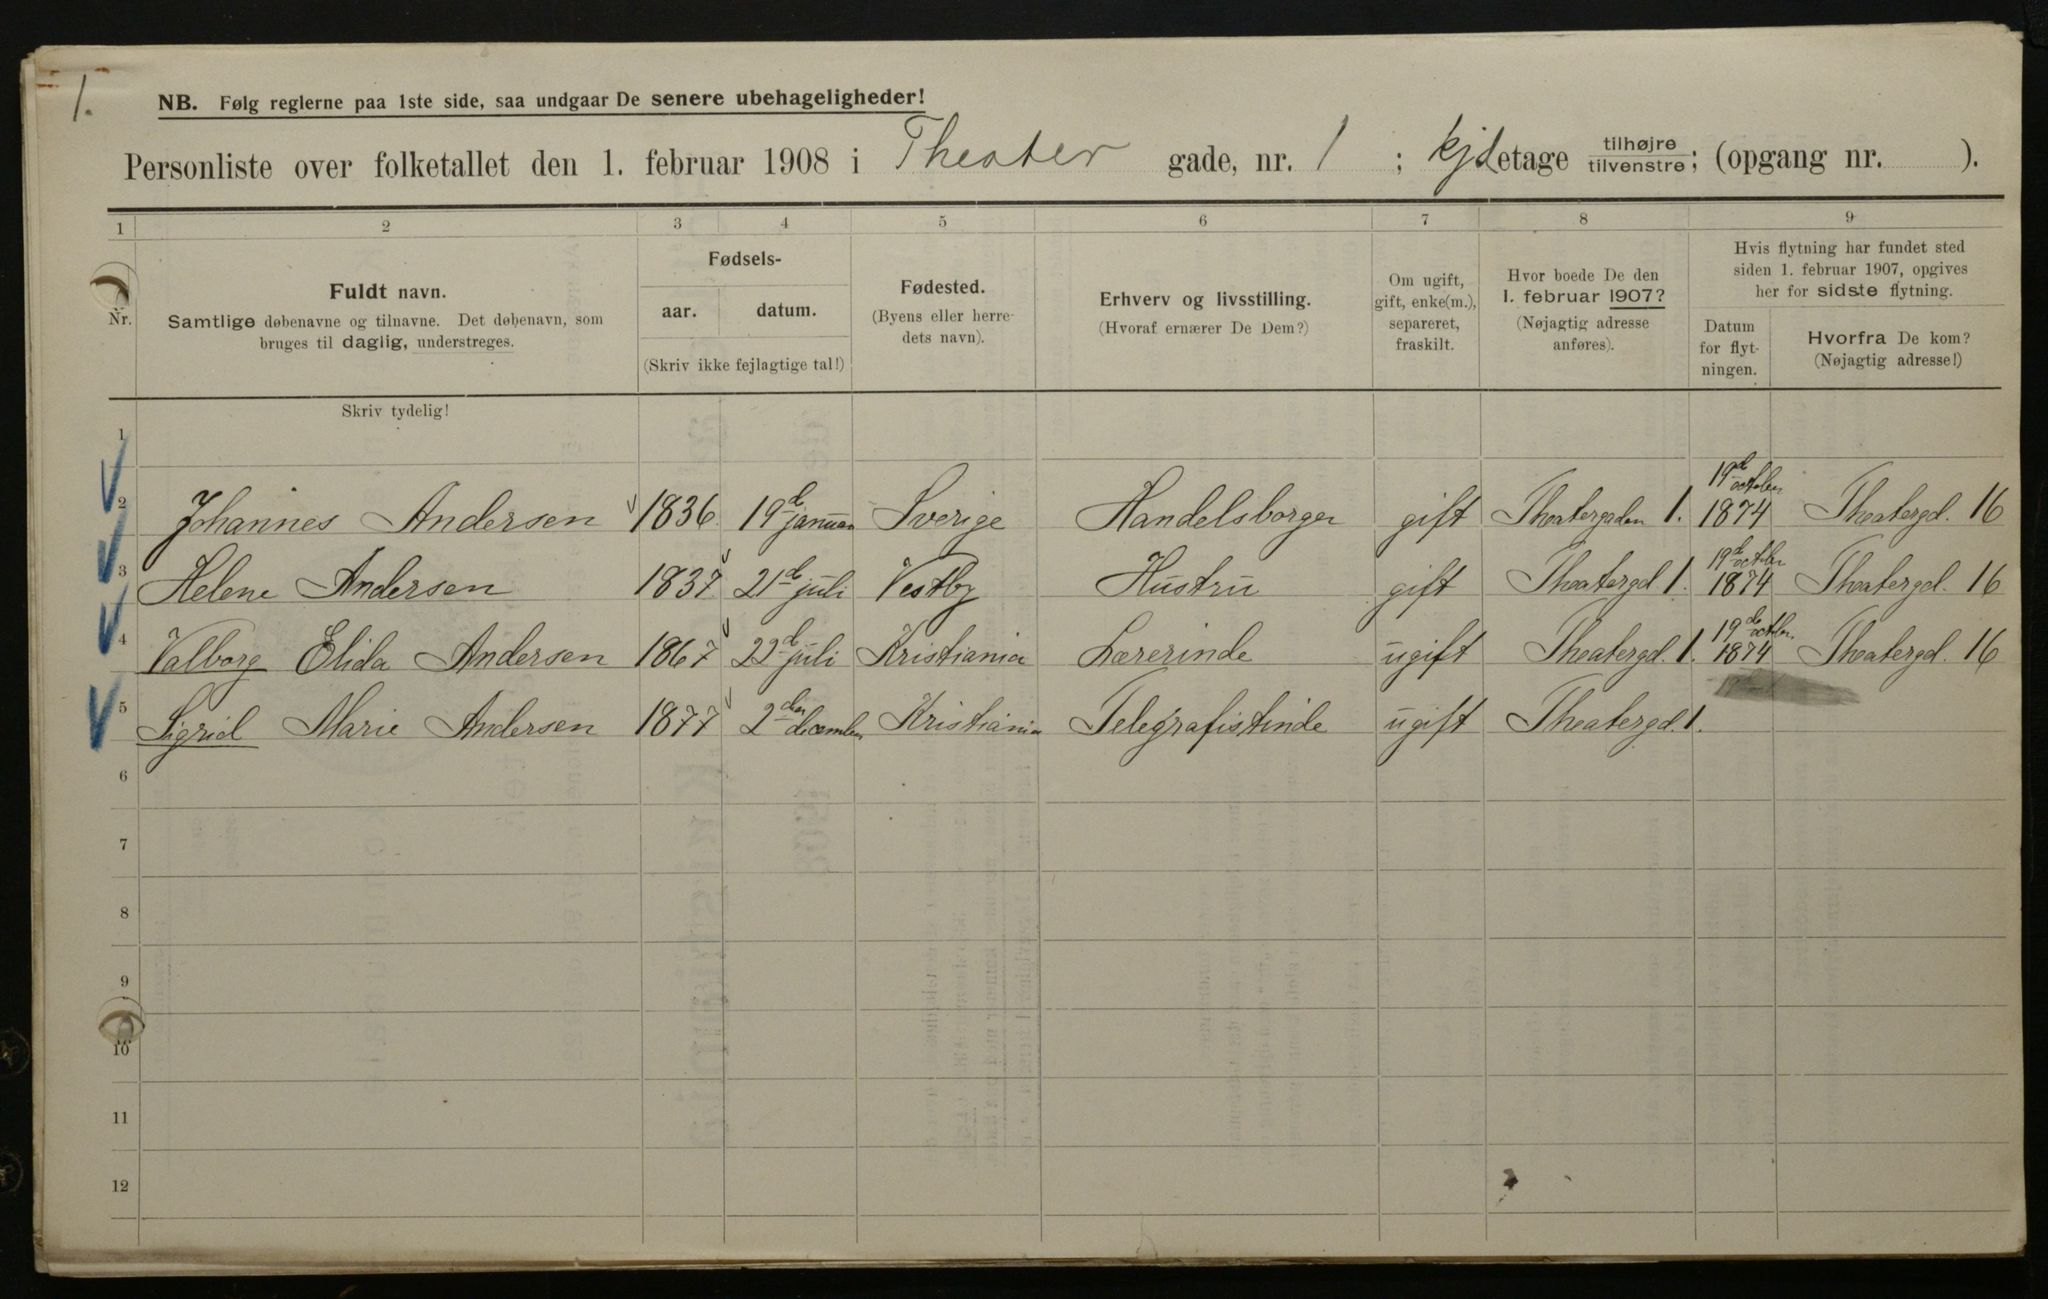 1.
NB. Følg reglerne paa 1ste side, saa undgaar De senere ubehageligheder!
Personliste over folketallet den 1. februar 1908 i Theater gade, nr. 1 ; kjd etage tilhøjre tilvenstre; (opgang nr. ).
1 2 3 4 5 6 7 8 9
Nr.
Fuldt navn.
Samtlige døbenavne og tilnavne. Det døbenavn, som
bruges til daglig, understreges.
Fødsels-
aar. datum.
(Skriv ikke fejlagtige tal!)
Fødested.
(Byens eller herre-
dets navn).
Erhverv og livsstilling.
(Hvoraf ernærer De Dem?)
Om ugift,
gift, enke(m.),
separeret,
fraskilt.
Hvor boede De den
1. februar 1907?
(Nøjagtig adresse
anføres).
Hvis flytning har fundet sted
siden 1. februar 1907, opgives
her for sidste flytning.
Datum
for flyt-
ningen.
Hvorfra De kom?
(Nøjagtig adresse!)
Skriv tydelig!
1
19de october
2 Johannes Andersen 1836 19de januar Sverige Handelsborger gift Theatergaden 1. 1874 Theatergd. 16
19de octbr
3 Helene Andersen 1837 21de juli Vestby Hustru gift Theatergd. 1. 1874 Theatergd. 16
19de octbr.
4 Valborg Elida Andersen 1867 22de juli Kristiania Lærerinde ugift Theatergd. 1. 1874 Theatergd. 16
5 Sigrid Marie Andersen 1877 2den december Kristiania Telegrafistinde ugift Theatergd. 1.
6
7
8
9
10
11
12